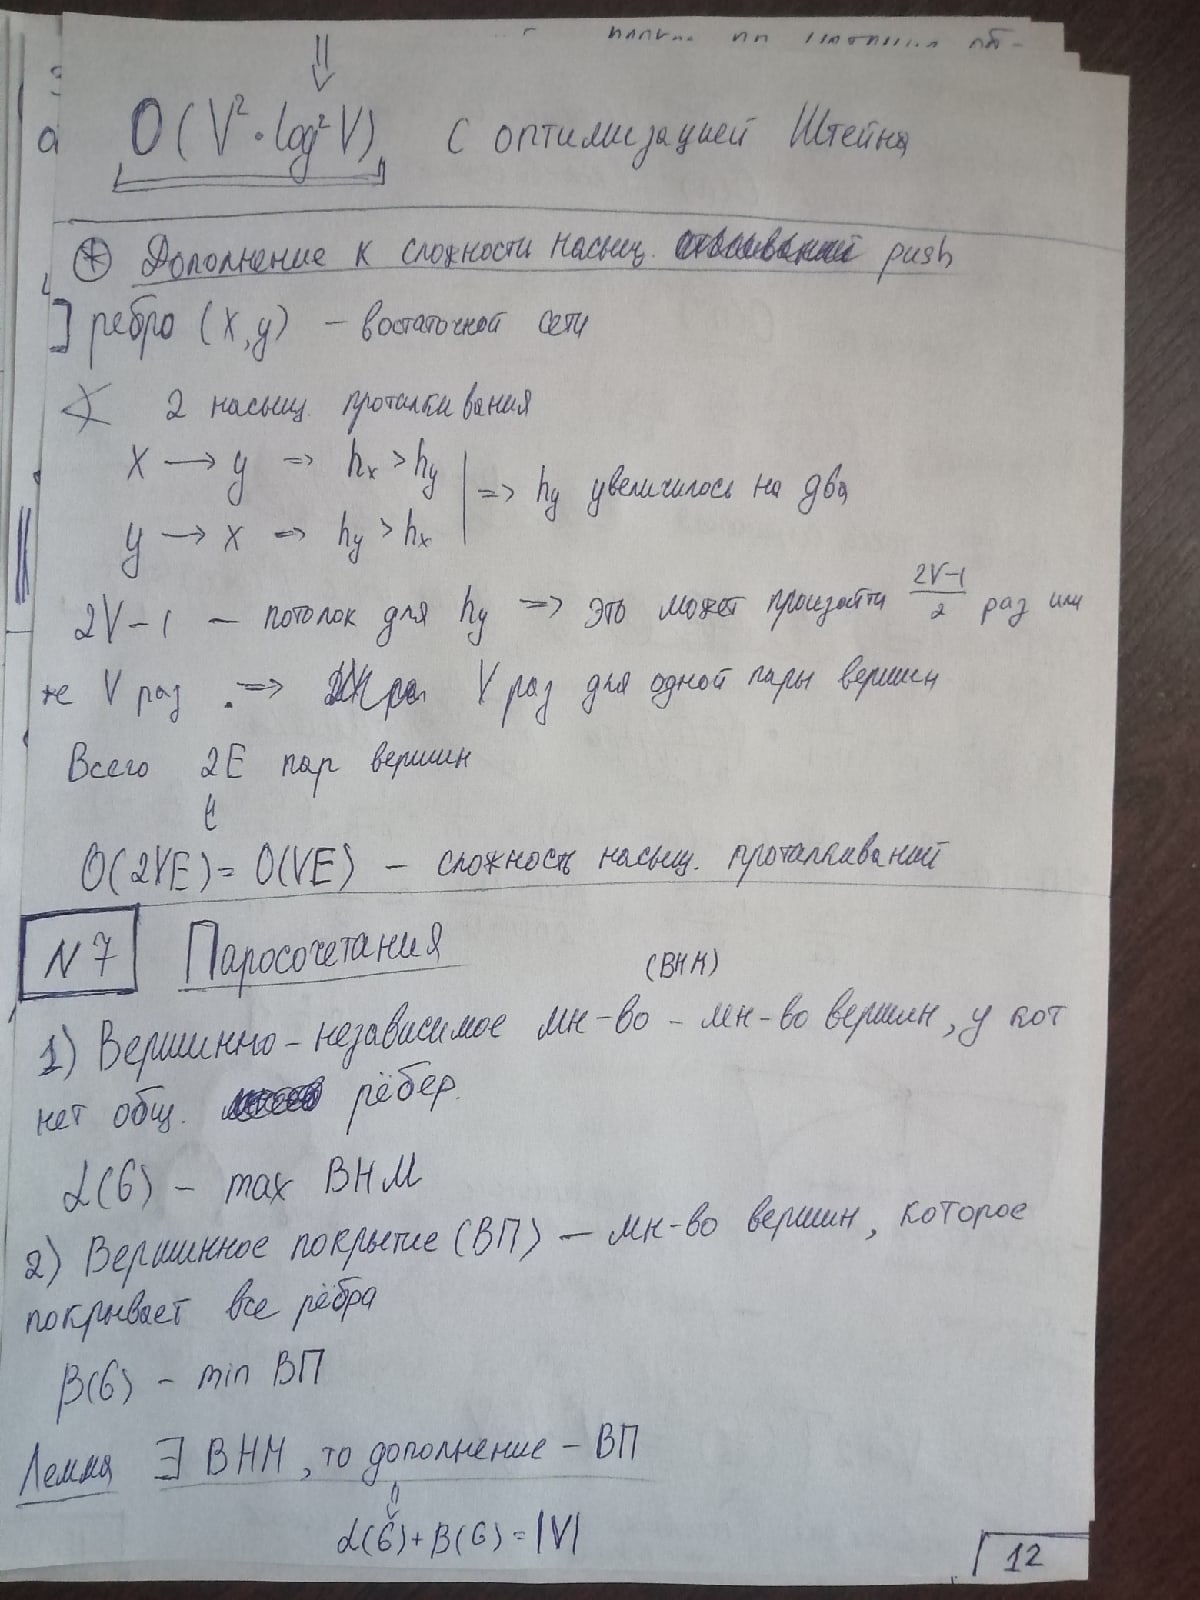 ⇓
O(V²·log²V) с оптимизацией Штейна
⊛ Дополнение к сложности насыщ. push
] ребро (x,y) – в остаточной сети
2 насыщ. проталкивания
x → y => hx > hy
=> hy увеличилось на два
y → x => hy > hx
2V–1 – потолок для hy => это может произойти (2V–1)/2 раз или
же V раз. => V раз для одной пары вершин
Всего 2E пар вершин
⇓
O(2VE) = O(VE) – сложность насыщ. проталкиваний
N7 Паросочетания
(ВНМ)
1) Вершинно-независимое мн-во – мн-во вершин, у кот
нет общ. рёбер.
α(G) – max ВНМ
2) Вершинное покрытие (ВП) – мн-во вершин, которое
покрывает все рёбра
β(G) – min ВП
Лемма ∃ ВНМ, то дополнение – ВП
⇓
α(G) + β(G) = |V|
12